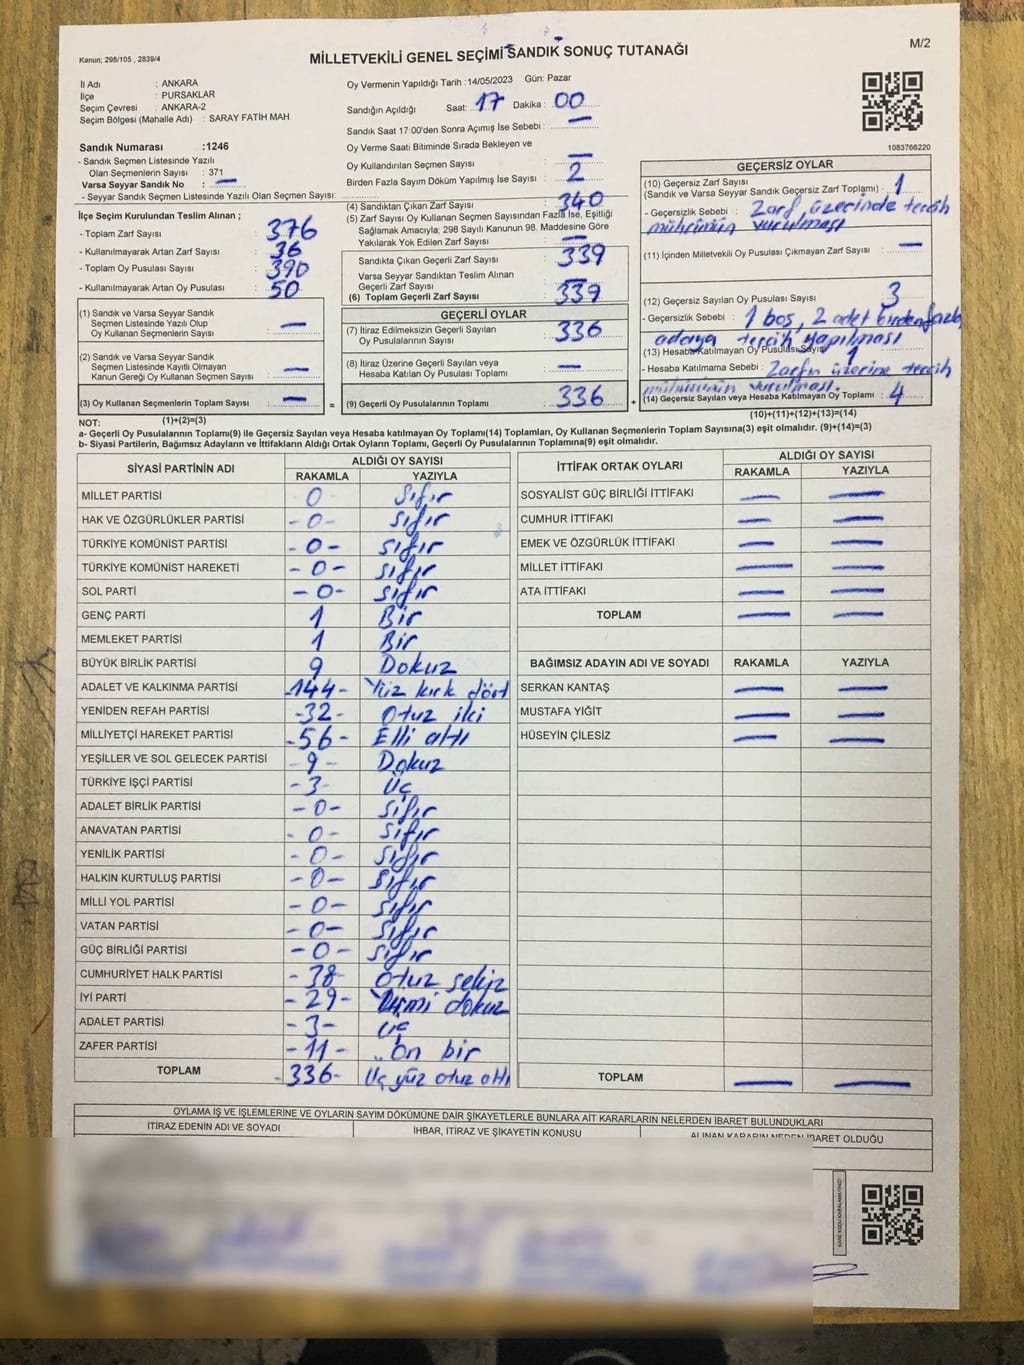 M/2
Kanun; 298/105 , 2839/4
MİLLETVEKİLİ GENEL SEÇİMİ SANDIK SONUÇ TUTANAĞI
İl Adı : ANKARA
İlçe : PURSAKLAR
Seçim Çevresi : ANKARA-2
Seçim Bölgesi (Mahalle Adı) : SARAY FATİH MAH.
Sandık Numarası :1246
- Sandık Seçmen Listesinde Yazılı
Olan Seçmenlerin Sayısı : 371
Varsa Seyyar Sandık No : —
- Seyyar Sandık Seçmen Listesinde Yazılı Olan Seçmen Sayısı:
Oy Vermenin Yapıldığı Tarih :14/05/2023 Gün: Pazar
Sandığın Açıldığı Saat: 17 Dakika : 00
Sandık Saat 17:00'den Sonra Açımış İse Sebebi : —
Oy Verme Saati Bitiminde Sırada Bekleyen ve
Oy Kullandırılan Seçmen Sayısı : —
Birden Fazla Sayım Döküm Yapılmış İse Sayısı : 2
1083766220
İlçe Seçim Kurulundan Teslim Alınan ;
- Toplam Zarf Sayısı : 376
- Kullanılmayarak Artan Zarf Sayısı : 36
- Toplam Oy Pusulası Sayısı : 390
- Kullanılmayarak Artan Oy Pusulası : 50
(1) Sandık ve Varsa Seyyar Sandık
Seçmen Listesinde Yazılı Olup
Oy Kullanan Seçmenlerin Sayısı : —
(2) Sandık ve Varsa Seyyar Sandık
Seçmen Listesinde Kayıtlı Olmayan
Kanun Gereği Oy Kullanan Seçmen Sayısı : —
(3) Oy Kullanan Seçmenlerin Toplam Sayısı : —
(1)+(2)=(3)
(4) Sandıktan Çıkan Zarf Sayısı : 340
(5) Zarf Sayısı Oy Kullanan Seçmen Sayısından Fazla İse, Eşitliği
Sağlamak Amacıyla; 298 Sayılı Kanunun 98. Maddesine Göre
Yakılarak Yok Edilen Zarf Sayısı : —
Sandıkta Çıkan Geçerli Zarf Sayısı : 339
Varsa Seyyar Sandıktan Teslim Alınan
Geçerli Zarf Sayısı : —
(6) Toplam Geçerli Zarf Sayısı : 339
GEÇERLİ OYLAR
(7) İtiraz Edilmeksizin Geçerli Sayılan
Oy Pusulalarının Sayısı : 336
(8) İtiraz Üzerine Geçerli Sayılan veya
Hesaba Katılan Oy Pusulası Toplamı : —
= (9) Geçerli Oy Pusulalarının Toplamı : 336 +
GEÇERSİZ OYLAR
(10) Geçersiz Zarf Sayısı
(Sandık ve Varsa Seyyar Sandık Geçersiz Zarf Toplamı) : 1
- Geçersizlik Sebebi : Zarf üzerinde tercih
mührünün vurulması
(11) İçinden Milletvekili Oy Pusulası Çıkmayan Zarf Sayısı : —
(12) Geçersiz Sayılan Oy Pusulası Sayısı : 3
- Geçersizlik Sebebi : 1 boş, 2 adet birden fazla
adaya tercih yapılması
(13) Hesaba Katılmayan Oy Pusulası Sayısı : 1
- Hesaba Katılmama Sebebi : Zarfın üzerine tercih
mührünün vurulması.
(14) Geçersiz Sayılan veya Hesaba Katılmayan Oy Toplamı : 4
(10)+(11)+(12)+(13)=(14)
NOT:
a- Geçerli Oy Pusulalarının Toplamı(9) ile Geçersiz Sayılan veya Hesaba katılmayan Oy Toplamı(14) Toplamları, Oy Kullanan Seçmenlerin Toplam Sayısına(3) eşit olmalıdır. (9)+(14)=(3)
b- Siyasi Partilerin, Bağımsız Adayların ve İttifakların Aldığı Ortak Oyların Toplamı, Geçerli Oy Pusulalarının Toplamına(9) eşit olmalıdır.
SİYASİ PARTİNİN ADI ALDIĞI OY SAYISI
RAKAMLA YAZIYLA
MİLLET PARTİSİ 0 Sıfır
HAK VE ÖZGÜRLÜKLER PARTİSİ -0- Sıfır
TÜRKİYE KOMÜNİST PARTİSİ -0- Sıfır
TÜRKİYE KOMÜNİST HAREKETİ -0- Sıfır
SOL PARTİ -0- Sıfır
GENÇ PARTİ 1 Bir
MEMLEKET PARTİSİ 1 Bir
BÜYÜK BİRLİK PARTİSİ 9 Dokuz
ADALET VE KALKINMA PARTİSİ -144- Yüz kırk dört
YENİDEN REFAH PARTİSİ -32- Otuz iki
MİLLİYETÇİ HAREKET PARTİSİ -56- Elli altı
YEŞİLLER VE SOL GELECEK PARTİSİ -9- Dokuz
TÜRKİYE İŞÇİ PARTİSİ -3- Üç
ADALET BİRLİK PARTİSİ -0- Sıfır
ANAVATAN PARTİSİ -0- Sıfır
YENİLİK PARTİSİ -0- Sıfır
HALKIN KURTULUŞ PARTİSİ -0- Sıfır
MİLLİ YOL PARTİSİ -0- Sıfır
VATAN PARTİSİ -0- Sıfır
GÜÇ BİRLİĞİ PARTİSİ -0- Sıfır
CUMHURİYET HALK PARTİSİ -38- Otuz sekiz
İYİ PARTİ -29- Yirmi dokuz
ADALET PARTİSİ -3- Üç
ZAFER PARTİSİ -11- On bir
TOPLAM -336- Üç yüz otuz altı
İTTİFAK ORTAK OYLARI ALDIĞI OY SAYISI
RAKAMLA YAZIYLA
SOSYALİST GÜÇ BİRLİĞİ İTTİFAKI — —
CUMHUR İTTİFAKI — —
EMEK VE ÖZGÜRLÜK İTTİFAKI — —
MİLLET İTTİFAKI — —
ATA İTTİFAKI — —
TOPLAM — —
BAĞIMSIZ ADAYIN ADI VE SOYADI RAKAMLA YAZIYLA
SERKAN KANTAŞ — —
MUSTAFA YİĞİT — —
HÜSEYİN ÇİLESİZ — —
TOPLAM — —
OYLAMA İŞ VE İŞLEMLERİNE VE OYLARIN SAYIM DÖKÜMÜNE DAİR ŞİKAYETLERLE BUNLARA AİT KARARLARIN NELERDEN İBARET BULUNDUKLARI
İTİRAZ EDENİN ADI VE SOYADI İHBAR, İTİRAZ VE ŞİKAYETİN KONUSU ALINAN KARARIN NEDEN İBARET OLDUĞU